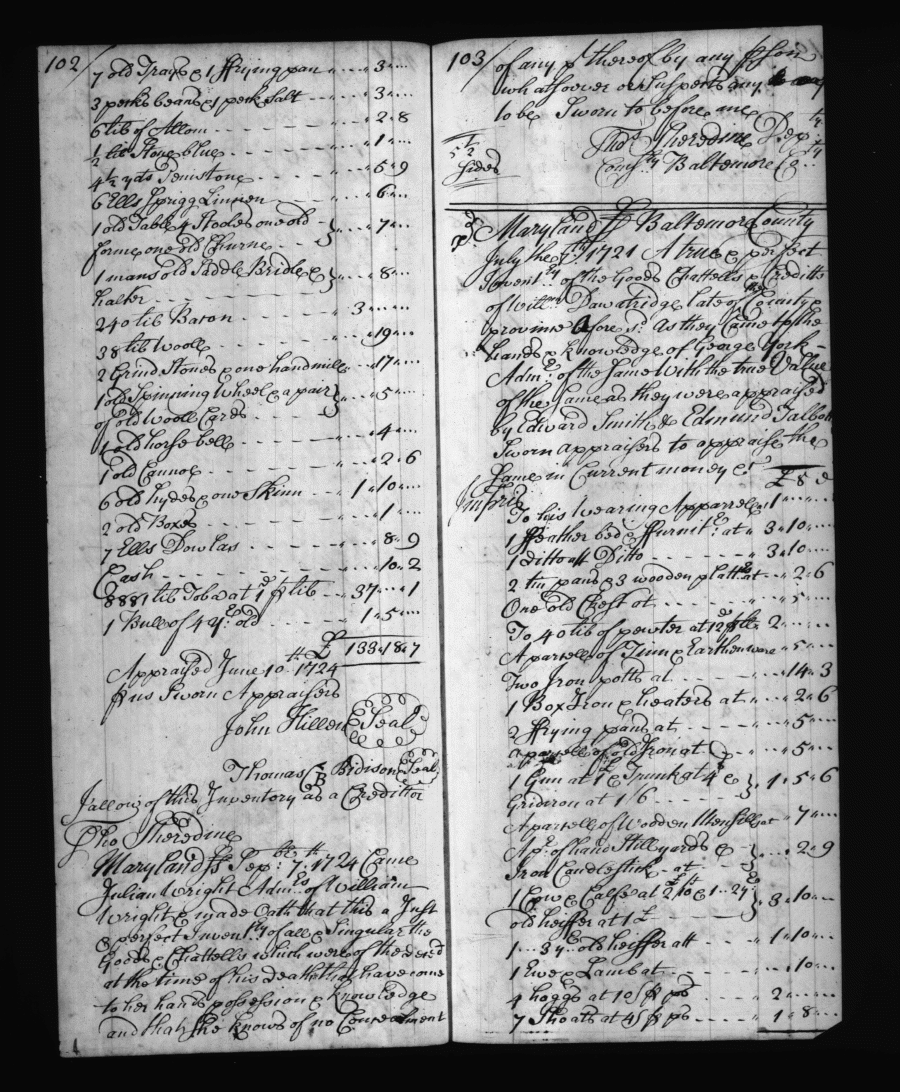 102/
7 old Trays & 1 ffrying pan - - - " 3 " ...
3 pecks beans & 1 peck Salt - - - " 3 " ...
6 lib of Allom - - - " 2 " 8
2 lib Stone blue - - - " 1 " ...
4½ yds Penistone - - - " 5 " 9
6 Ells Sprigg Linnen - - - " 6 " ...
1 old Table 4 Stooles one old
forme one old Churne - - - } " 7 " ...
1 mans old Saddle Bridle &
halter - - - } " 8 " ...
240 lib Bacon - - - 3 " ... " ...
38 lib Wooll - - - " 19 " ...
2 Grind Stones & one handmill - - - " 17 " ...
1 old Spinning Wheel & a pair
of old Wooll Cards - - - } " 5 " ...
1 old horse bell - - - " 4 " ...
1 old Cannoe - - - " 2 " 6
6 old hydes & one Skinn - - - 1 " 10 " ...
2 old Boxes - - - " 1 " ...
7 Ells Dowlas - - - " 8 " 9
Cash - - - " 10 " 2
8881 lib Tobo at 1d ⅌ lib - - - 37 " ... " 1
1 Bull of 4 yrs old - - - 1 " 5 " ...
£ 133 " 18 " 7
Appraised June 10th 1724
⅌ us Sworn Appraisers
John Hillen (Seal)
Thomas B Bidison (Seal)
I allow of this Inventory as a Creditor
Tho Sheredine
Maryland ss Sepbr 7th 1724 Came
Julian Wright Admrs of William
Wright & made Oath that this a Just
& perfect Inventry of all & Singular the
Goods & Chattells which were of the decd
at the time of his death that have come
to her hands possession & knowledge
and that she knows of no Concealment
103/
of any pt thereof by any ⅌son
whatsoever or Suspects any
to be Sworn to before me
Thos Sheredine Dep ty
Comysry Baltemore Co
5½
Sides
Maryland ss Baltemore County
July the 7th 1721 A true & perfect
Inventry of the Goods Chattells & Creditts
of Willm Dawatridge late of the County &
province afore sd As they Came to the
hands & knowledge of George York -
Admr of the Same With the true Vallue
of the Same as they were appraised
by Edward Smith & Edmund Talbott
Sworn appraisers to appraise the
Same in Current money &c
Impris £ S D
To his Wearing Apparrell 1 " ... " ...
1 ffeather bed & ffurnitr at " 3 " 10 " ...
1 ditto att Ditto - - - " 3 " 10 " ...
2 tin pans & 3 wooden platts at - - " 2 " 6
One old Chest at - - - " 5 " ...
To 40 lib of pewter at 12d ⅌ lb 2 " ... " ...
A parsell of Tinn & Earthenware " 5 " ...
Two Iron potts at - - - " 14 " 3
1 Box Iron & heaters at - - " 2 " 6
2 ffrying pans at - - - " 5 " ...
a parsell of old Iron at - - - " 5 " ...
1 Gun at 1£ & Trunk at 4s &
Gridiron at 1/6 - - - } 1 " 5 " 6
A parsell of Wooden Utensills at " 7 " ...
A pr of hand Stillyards &
Iron Candlestick - at - - } " 2 " 9
1 Cow & Calfe at 2£ 10 & 1 " 2 yr
old heiffer at 1£ - - - } 3 " 10 " ...
1 " 3 yr old heiffer att - - - " 1 " 10 " ...
1 Ewe & Lamb at - - - " 10 " ...
4 hoggs at 10s ⅌ ps - - - " 2 " ... " ...
7 Shoats at 4s ⅌ ps - - - " 1 " 8 " ...